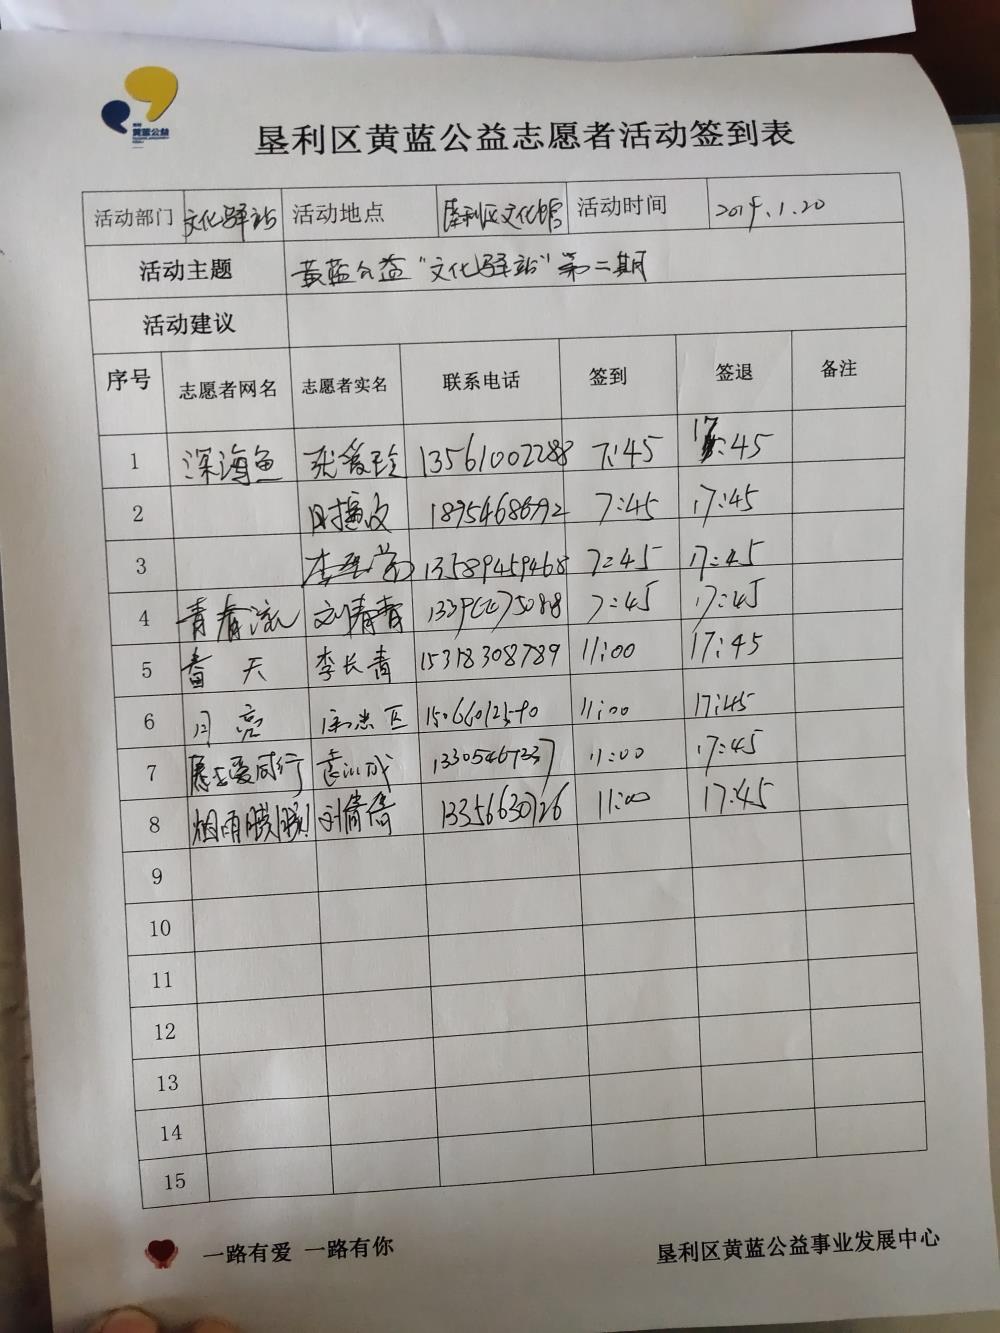 黄蓝公益
垦利区黄蓝公益志愿者活动签到表
活动部门 文化驿站 活动地点 垦利区文化馆 活动时间 2019.1.20
活动主题 黄蓝公益“文化驿站”第二期
活动建议
序号 志愿者网名 志愿者实名 联系电话 签到 签退 备注
1 深海鱼 张爱玲 13561002288 7:45 17:45
2 7:45 17:45
3 13589459468 7:45 17:45
4 青春流 刘青青 7:45 17:45
5 春天 李长青 15318308789 11:00 17:45
6 月亮 11:00 17:45
7 爱同行 11:00 17:45
8 烟雨朦胧 刘倩倩 13356630726 11:00 17:45
9
10
11
12
13
14
15
一路有爱 一路有你
垦利区黄蓝公益事业发展中心